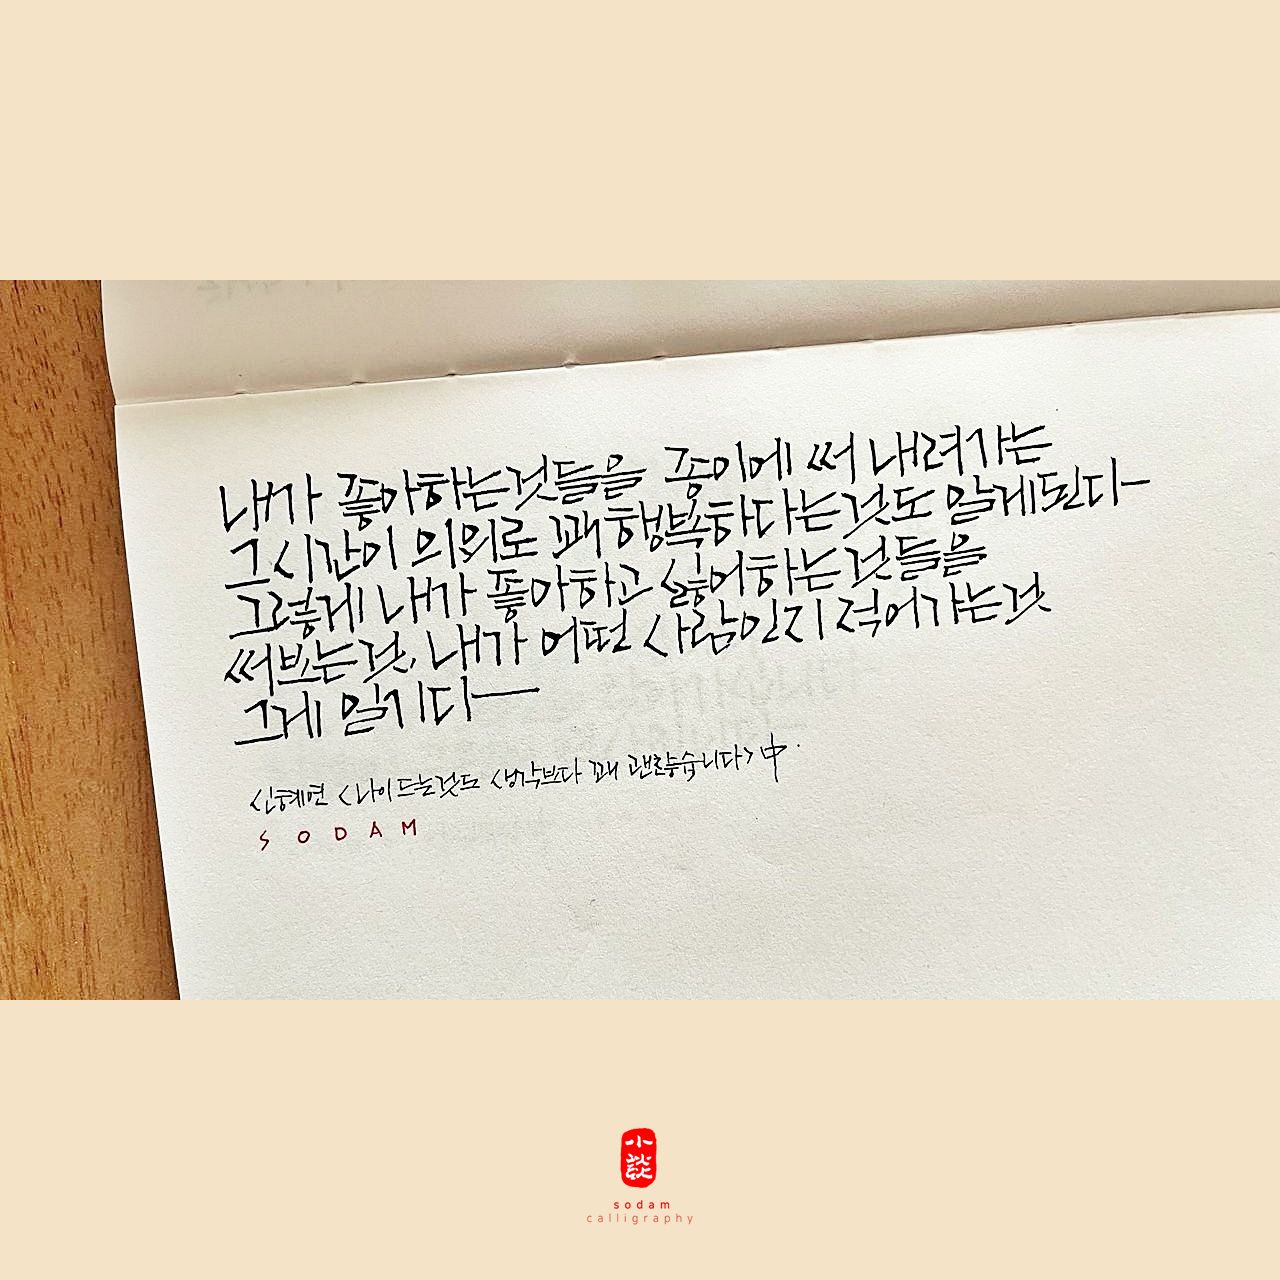 내가 좋아하는것들을 종이에 써 내려가는
그시간이 의외로 꽤 행복하다는것도 알게된다
그렇게 내가 좋아하고 싫어하는것들을
써보는것, 내가 어떤 사람인지 적어가는것
그게 일기다
신혜연 <나이드는것도 생각보다 꽤 괜찮습니다> 中.
SODAM
小談
sodam
calligraphy